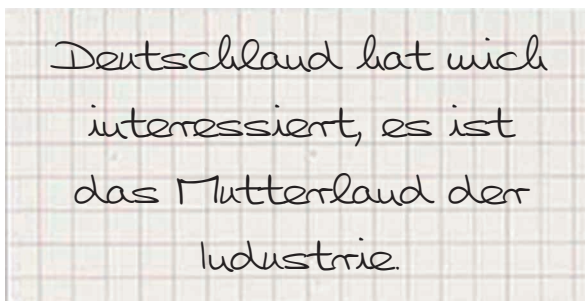 Deutschland hat mich
interessiert, es ist
das Mutterland der
Industrie.